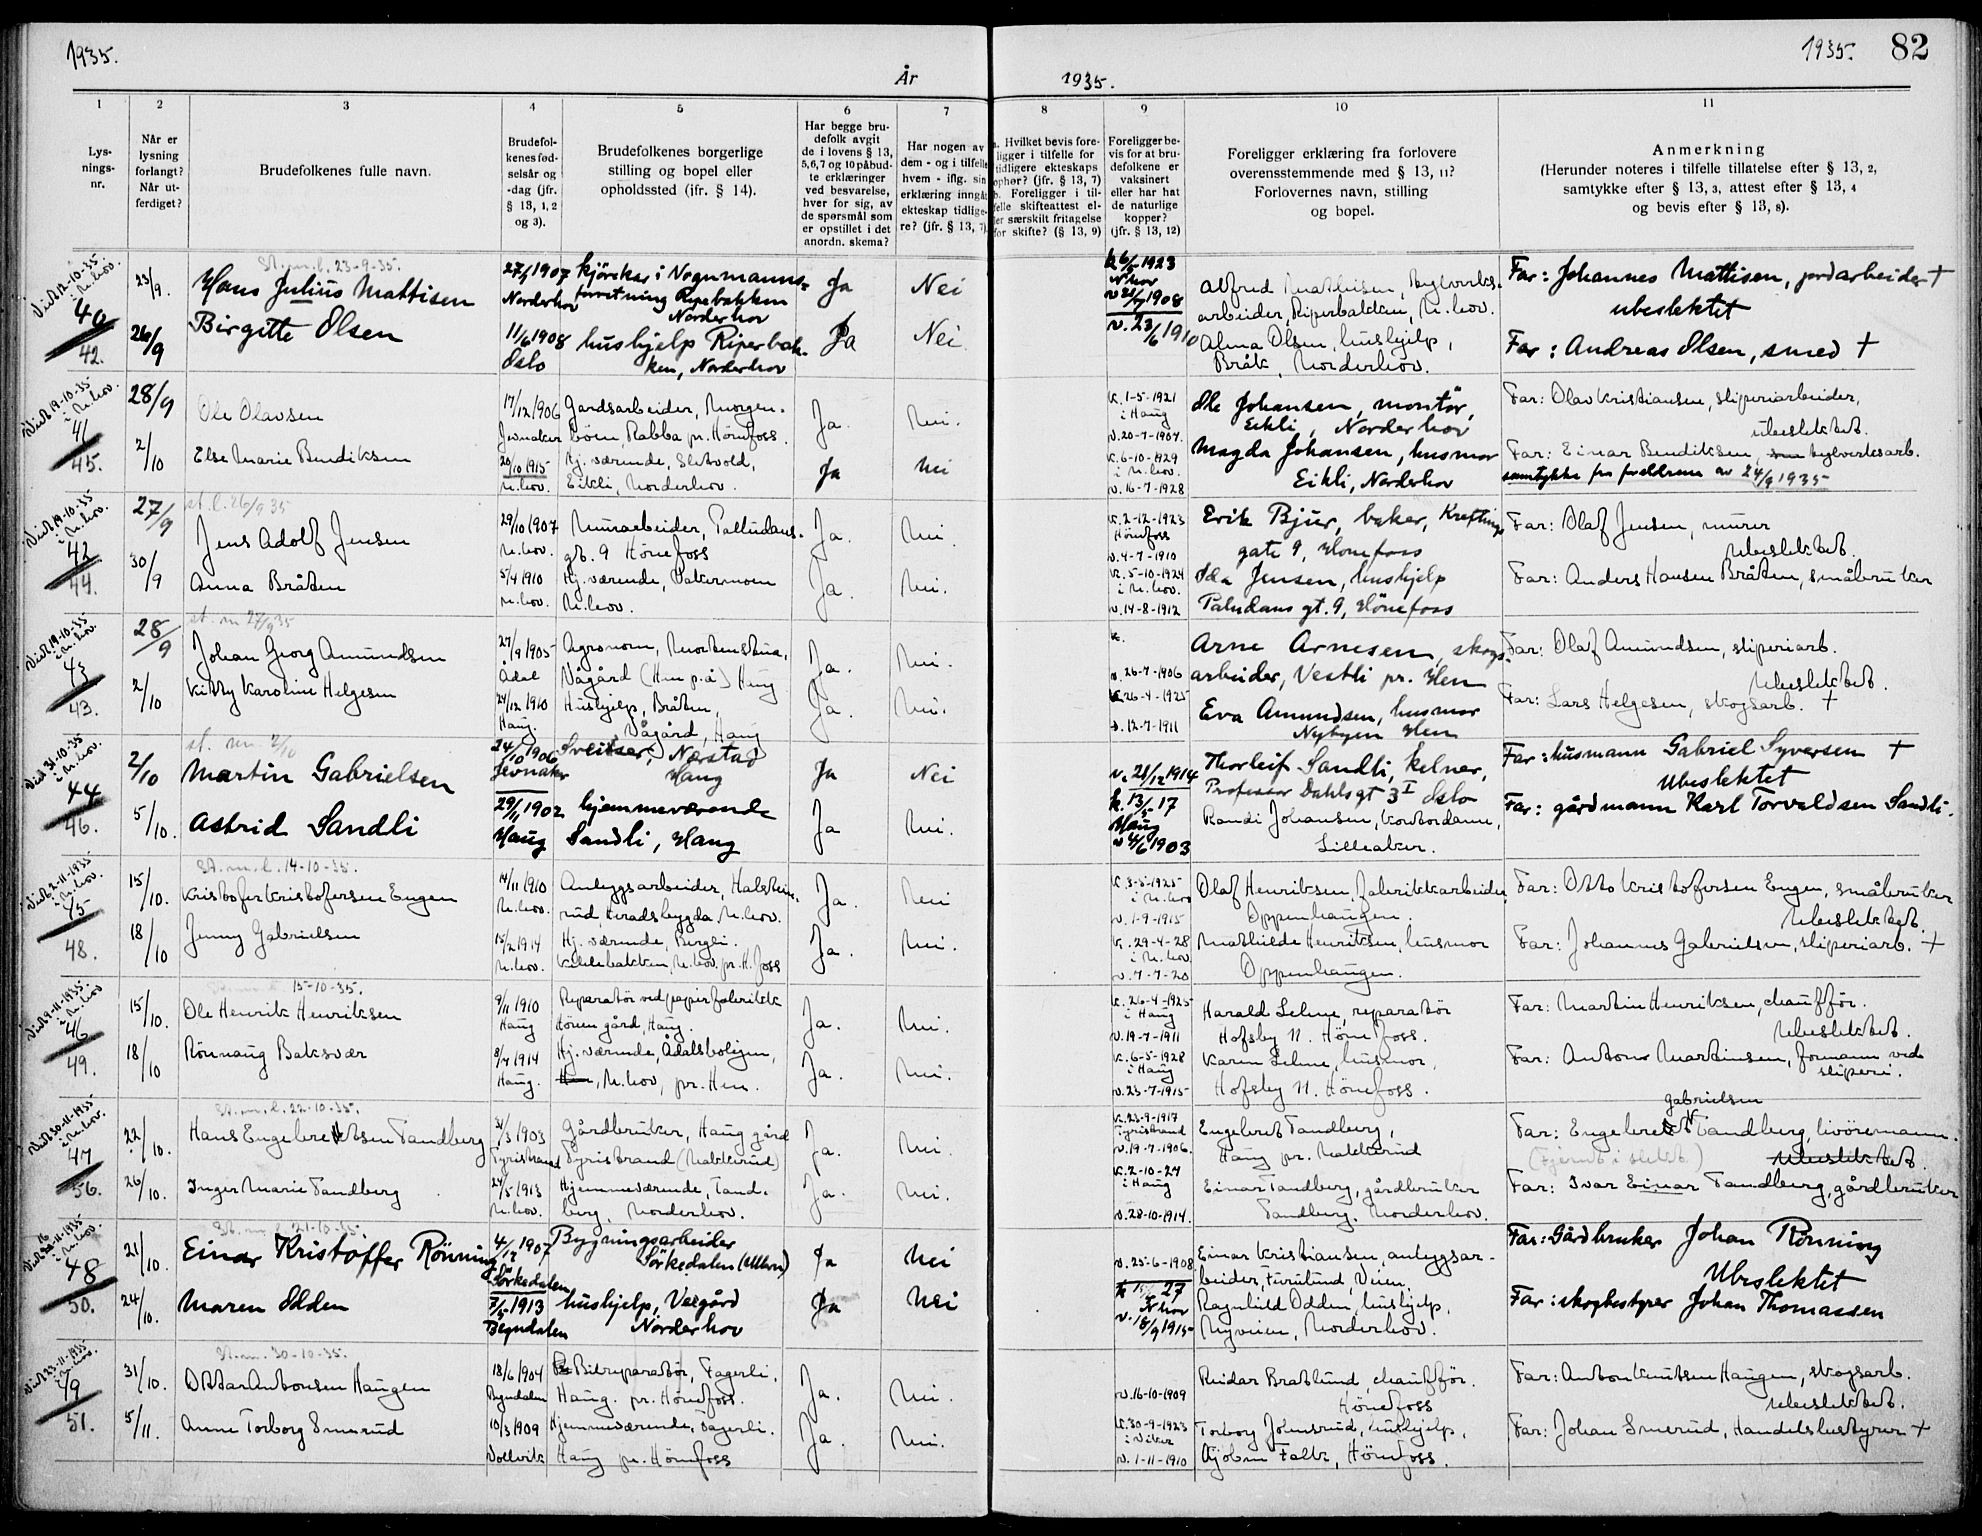 1935.
År
1935.
1935. 82
1
2
3
4
5
6
7
8
9
10
11
Lys-
nings-
nr.
Når er
lysning
forlangt?
Når ut-
ferdiget?
Brudefolkenes fulle navn.
Brudefol-
kenes fød-
selsår og
-dag (jfr.
§ 13, 1, 2
og 3).
Brudefolkenes borgerlige
stilling og bopel eller
opholdssted (jfr. § 14).
Har begge bru-
defolk avgit
de i lovens § 13,
5,6,7 og 10 påbud-
te erklæringer
ved besvarelse,
hver for sig, av
de spørsmål som
er opstillet i det
anordn. skema?
Har nogen av
dem - og i tilfelle
hvem - iflg. sin
erklæring inngåt
ekteskap tidlige-
re? (jfr. § 13, 7).
a. Hvilket bevis fore-
ligger i tilfelle for
tidligere ekteskaps
ophør? (jfr. § 13, 7)
b. Foreligger i til-
felle skifteattest el-
ler særskilt fritagelse
for skifte? (§ 13, 9)
Foreligger be-
vis for at bru-
defolkene er
vaksinert
eller har hat
de naturlige
kopper?
(jfr. § 13, 12)
Foreligger erklæring fra forlovere
overensstemmende med § 13, 11?
Forlovernes navn, stilling
og bopel.
Anmerkning
(Herunder noteres i tilfelle tillatelse efter § 13, 2,
samtykke efter § 13, 3, attest efter § 13, 4
og bevis efter § 13, 8).
Viet 12-10-35
i N.hov.
40
42.
23/9.
26/9
St. m. l. 23-9-35.
Hans Julius Mattisen
Birgitte Olsen
27/1 1907
Norderhov
11/6 1908
Oslo
kjörekar i Vognmanns-
forretning Ripebakken
Norderhov
hushjelp Riperbak-
ken, Norderhov
Ja
Ja
Nei
Nei
1923
N hov
1908
v. 23/6 1910
Alfred Mathisen, bylverks-
arbeider, Riperbakken, N.hov.
Alma Olsen, hushjelp,
Bråk, Norderhov.
Far: Johannes Mattisen, jordarbeider †
ubeslektet
Far: Andreas Olsen, smed †
Viet 19-10-35
i N.hov
41
45.
28/9
2/10
Ole Olavsen
Else Marie Bendiksen
17/12 1906
Jevnaker
20/10 1915
N.hov.
Gardsarbeider, Morgen-
böen Rabba pr. Hönefoss.
Hj. værende, Sletvold,
Eikli, Norderhov.
Ja.
Ja
Nei.
Nei
k. 1-5-1921
i Haug
v. 20-7-1907.
k. 6-10-1929
i N.hov.
v. 16-7-1928
Ole Johansen, montör,
Eikli, Norderhov
Magda Johansen, husmor
Eikli, Norderhov
Far: Olav Kristiansen, sliperiarbeider,
ubeslektet.
Far: Einar Bendiksen, bylverksarb.
samtykke fra foreldrene av 24/9 1935
Viet 19-10-35
i N.hov.
42
44.
27/9
30/9
st. l. 26/9 35
Jens Adolf Jensen
Anna Bråten
29/10 1907
N.hov.
5/4 1910
N.hov.
Murarbeider, Palludans-
gt. 9 Hönefoss
Hj. værende, Vakermoen
N.hov.
Ja.
Ja.
Nei.
Nei.
k. 2-12-1923
Hönefoss
v. 4-7-1910
k. 5-10-1924
i N.hov.
v. 14-8-1912
Erik Bjur, baker, Kreftings
gate 9, Hönefoss
Ida Jensen, hushjelp
Paludans gt. 9, Hönefoss
Far: Olaf Jensen, murer
Ubeslektet.
Far: Anders Hansen Bråten, småbruker
Viet 19-10-35
i N.hov.
43
43.
28/9
2/10
st. m 27/9 35
Johan Georg Amundsen
Kitty Karoline Helgesen
27/9 1905
Ådal
24/12 1910
Haug.
Agronom, Mortenstua,
Vågård (Hen p.å) Haug
Hushjelp, Bråten,
Vågård, Haug
Ja.
Ja.
Nei.
Nei.
k.
v. 26-7-1906
k. 26-4-1925
v. 12-7-1911
Arne Arnesen, skogs-
arbeider, Vestli pr. Hen
Eva Amundsen, husmor
Nybyen Hen
Far: Olaf Amundsen, sliperiarb.
Ubeslektet.
Far: Lars Helgesen, skogsarb. †
Viet 31-10-35
i N.hov.
44
46.
2/10
5/10.
st. m. 2/10
Martin Gabrielsen
Astrid Sandli
24/10 1906
Jevnaker
29/11 1902
Haug
Sveitser, Nærstad
Haug
hjemmeværende
Sandli, Haug
Ja
Ja
Nei
Nei.
v. 28/12 1914
k. 13/5 17
Haug
v 4/6 1903
Thorleif Sandli, kelner,
Professor Dahls gt 3 I Oslo
Randi Johansen, kontordame,
Lilleaker.
Far: husmann Gabriel Syversen †
Ubeslektet
Far: gårdmann Karl Torvaldsen Sandli.
Viet 2-11-1935
i N.hov.
45
48.
15/10.
18/10
St. m. l. 14-10-35.
Kristofer Kristofersen Engen
Jenny Gabrielsen
14/11 1910
N.hov.
15/2 1914
N.hov.
Anleggsarbeider, Halstein-
rud, Heradsbygda N.hov.
Hj. værende, Bergli.
Kihlebakken, N.hov. pr. H.foss
Ja.
Ja.
Nei
Nei.
k. 3-5-1925
i N.hov
v. 1-9-1915
k. 29-4-28
i N.hov
v. 7-7-20
Olaf Henriksen, fabrikkarbeider,
Oppenhaugen.
Mathilde Henriksen, husmor
Oppenhaugen.
Far: Otto Kristofersen Engen, småbruker
Ubeslektet.
Far: Johannes Gabrielsen, sliperiarb. †
Viet 9-11-1935.
i N.hov
46
49.
15/10.
18/10
15-10-35.
Ole Henrik Henriksen
Rönnaug Baksvær
9/11 1910
Haug
8/7 1914
Haug.
Reparatör ved papirfabrikk
Hönen gård, Haug.
Hj. værende, Ådalsboligen,
Hen, N.hov, pr. Hen.
Ja.
Ja.
Nei.
Nei.
k. 26-4-1925
i Haug
v. 19-7-1911
k. 6-5-1928
i Haug
v. 23-7-1915
Harald Lehne, reparatör
Hofsby N. Hönefoss.
Karen Lehne, husmor,
Hofsby N. Hönefoss.
Far: Martin Henriksen, chafför.
Ubeslektet.
Far: Anton Martinsen, formann ved
sliperi.
Viet 30-11-1935
i N.hov.
47
56.
22/10.
26/10.
St. m. l. 22-10-35.
Hans Engebretsen Tandberg
Inger Marie Tandberg
31/3 1903
Tyristrand
24/5 1913
N.hov.
Gårdbruker, Haug gård
Tyristrand (Nakkerud)
Hjemmeværende, Tand-
berg, Norderhov.
Ja.
Ja.
Nei.
Nei.
k. 23-9-1917
Tyristrand
v. 19-7-1906.
k. 2-10-27
i Haug
v. 28-10-1914.
Engebret Tandberg,
Haug pr. Nakkerud
Einar Tandberg, gårdbruker
Tandberg. Norderhov.
Gabrielsen
Far: Engebret Tandberg, livöremann.
(Fjernt i slekt.) Ubeslektet.
Far: Ivar Einar Tandberg, gårdbruker
16
Viet -11-1935
i N.hov.
48
50.
21/10.
24/10.
St. m. l. 21-10-35.
Einar Kristoffer Rönning
Maren Olden
4/12 1907
Sörkedalen
7/6 1913
Begndalen
Bygningsarbeider
Sörkedalen (Ullern)
hushjelp, Vegård
Norderhov
Ja
Ja
Nei
Nei
v. 25-6-1908
27
N hov
v. 18/9 1915
Einar Kristiansen, anleggsar-
beider, Furulund, Veien.
Ragnhild Odden, hushjelp,
Nyveien, Norderhov.
Far: Gårdbruker Johan Rönning
Ubeslektet
Far: skogbestyrer Johan Thomassen
Viet 23-11-1935
i N.hov.
49
51.
31/10.
5/11.
St. m. 30-10-35.
Ottar Antonsen Haugen
Anne Torborg Smerud
18/6 1904
Begndalen
10/3 1909
Vollvik
Bilreparatör, Fagerli,
Haug. pr. Hönefoss.
Hjemmeværende, Fagerli.
Haug pr. Hönefoss
Ja.
Ja.
Nei.
Nei.
v. 16-10-1909
k. 30-9-1923
i Viker
v. 1-11-1910
Reidar Bratlund, chaufför.
Hönefoss
Torborg Johnsrud, hushjelp,
Hönefoss.
Far: Anton Knutsen Haugen, skogsarb.
Ubeslektet.
Far: Johan Smerud, Handelsbestyrer †